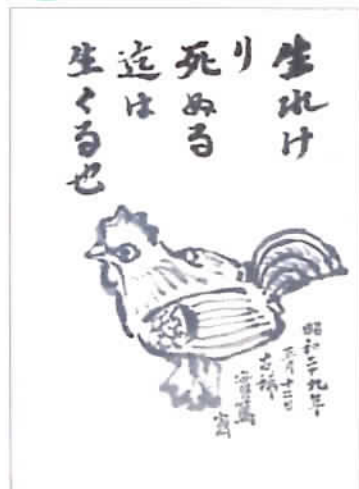 生れけ
り
死ぬる
迄は
生くる也
昭和二十九年
三月十二日
古稀